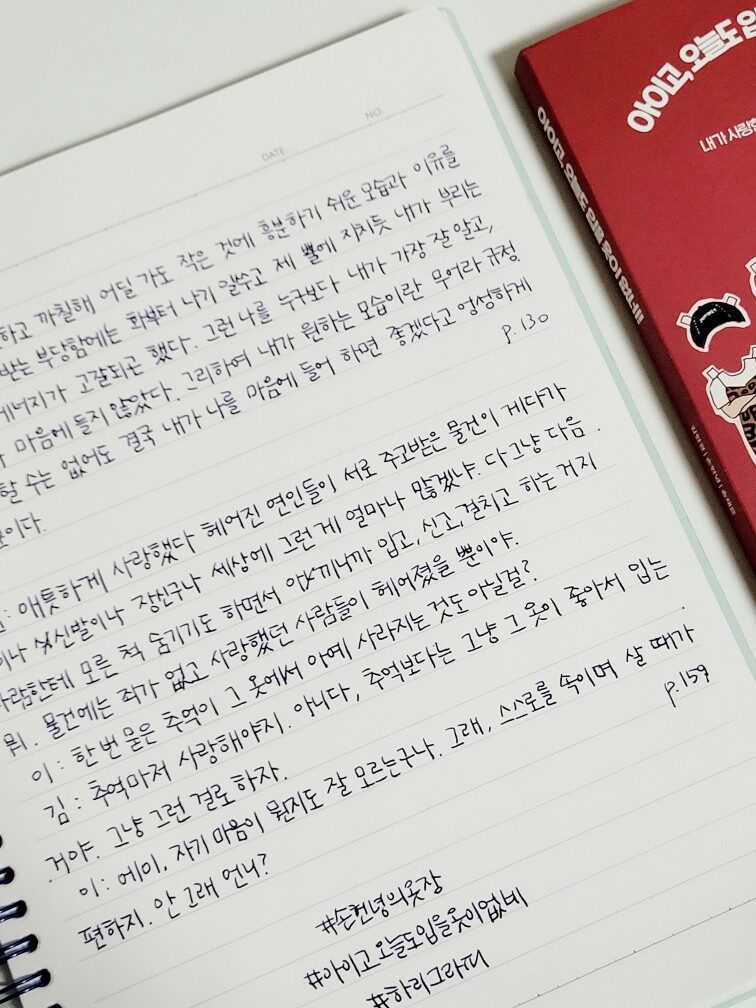 DATE
NO.
하고 까칠해 어딜 가도 작은 것에 흥분하기 쉬운 모습과 이유를
받는 부당함에는 화부터 나기 일쑤고 제 뿔에 지치듯 내가 부리는
에너지가 고갈되곤 했다. 그런 나를 누구보다 내가 가장 잘 알고,
마음에 들지 않았다. 그리하여 내가 원하는 모습이란 무어라 규정
할 수는 없어도 결국 내가 나를 마음에 들어 하면 좋겠다고 엉성하게
이다.
p.130
: 애틋하게 사랑했다 헤어진 연인들이 서로 주고받은 물건이 게다가
이나 신발이나 장신구나 세상에 그런 게 얼마나 많겠냐. 다 그냥 다음
사람한테 모른 척 숨기기도 하면서 아끼니까 입고, 신고, 걸치고 하는 거지
뭐. 물건에는 죄가 없고 사랑했던 사람들이 헤어졌을 뿐이야.
이 : 한 번 묻은 추억이 그 옷에서 아예 사라지는 것도 아닐걸?
김 : 추억마저 사랑해야지. 아니다, 추억보다는 그냥 그 옷이 좋아서 입는
거야. 그냥 그런 걸로 하자.
이 : 에이, 자기 마음이 뭔지도 잘 모르는구나. 그래, 스스로를 속이며 살 때가
편하지. 안 그래 언니?
p.159
#손컨녕의옷장
#아이고오늘도입을옷이없네
#하리그라피
아이고, 오늘도 입
내가 사랑한
아이고, 오늘도 입을 옷이 없네!